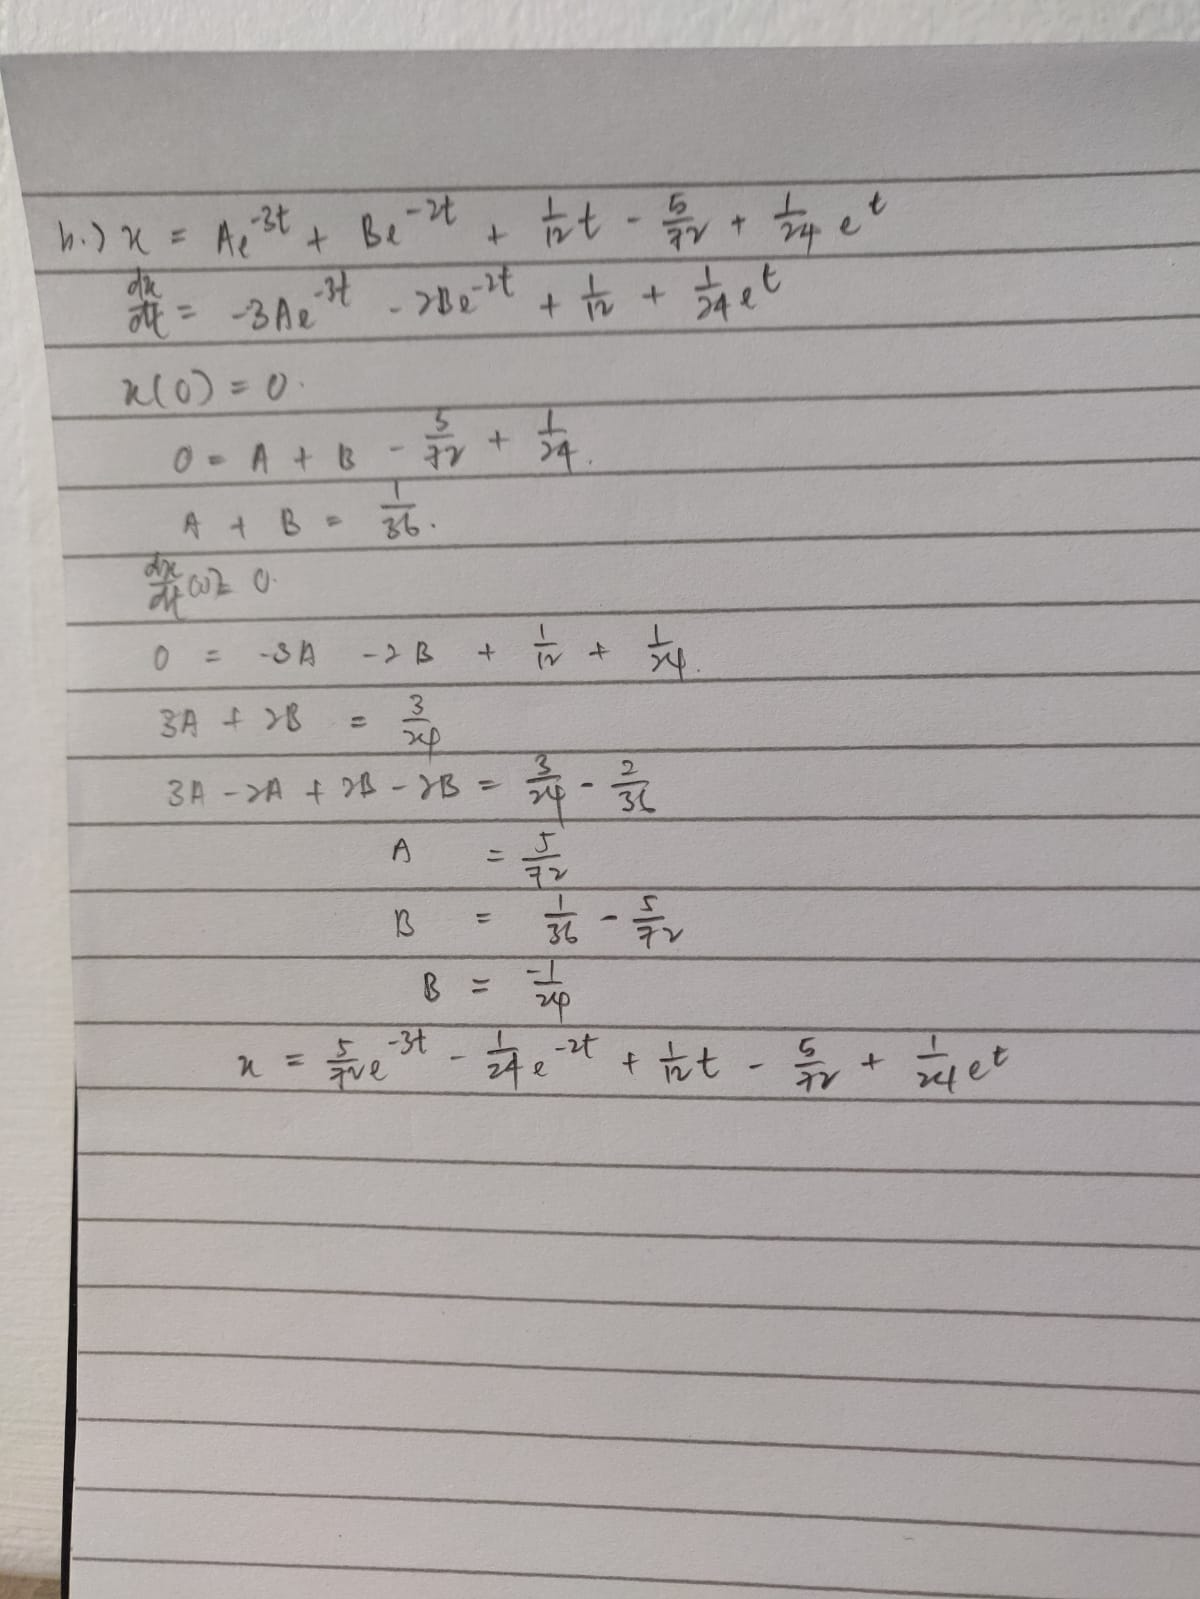 b.) x = Ae^-3t + Be^-2t + 1/12 t - 5/72 + 1/24 e^t
dx/dt = -3Ae^-3t - 2Be^-2t + 1/12 + 1/24 e^t
x(0) = 0.
0 = A + B - 5/72 + 1/24.
A + B = 1/36.
dx/dt (0) = 0.
0 = -3A - 2B + 1/12 + 1/24.
3A + 2B = 3/24
3A - 2A + 2B - 2B = 3/24 - 2/36
A = 5/72
B = 1/36 - 5/72
B = -1/24
x = 5/72 e^-3t - 1/24 e^-2t + 1/12 t - 5/72 + 1/24 e^t